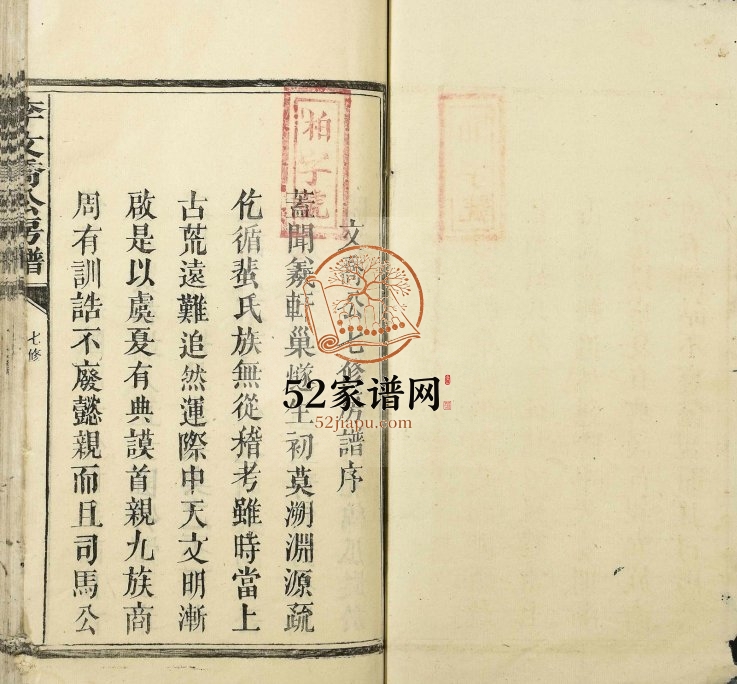 柏字號
文喬公七修房譜序
蓋聞羲軒巢燧生初莫溯淵源疏
仡循蜚氏族無從稽考雖時當上
古荒遠難追然運際中天文明漸
啟是以虞夏有典謨首親九族商
周有訓誥不廢懿親而且司馬公
李文喬公房譜
七修
52家谱网
52jiapu.com